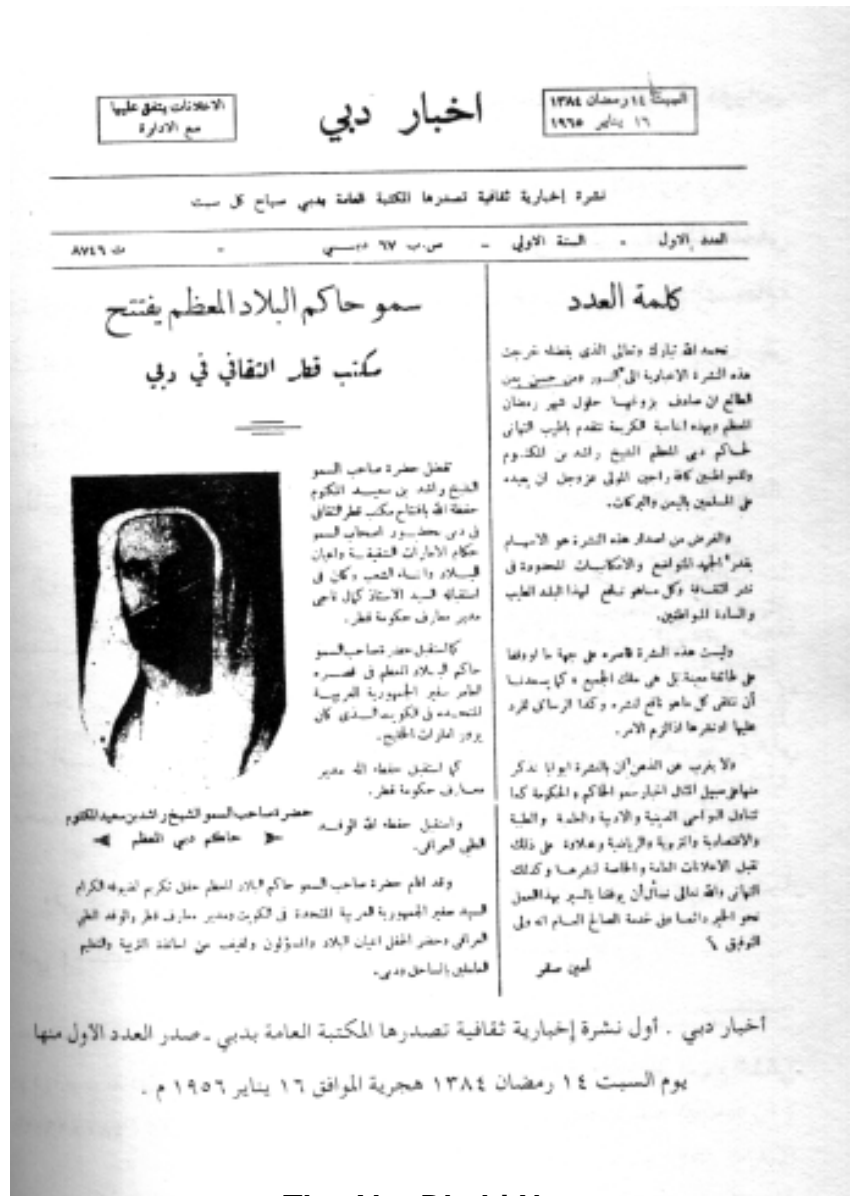 السبت ١٤ رمضان ١٣٨٤
١٦ يناير ١٩٦٥
اخبار دبي
الاعلانات يتفق عليها
مع الادارة
نشرة إخبارية ثقافية تصدرها المكتبة العامة بدبي صباح كل سبت
العدد الاول - السنة الاولى - ص.ب ٦٧ دبـــي - ت ٨٧٤٦
كلمة العدد
نحمد الله تبارك وتعالى الذى بفضله خرجت
هذه النشرة الاخبارية الى النـور ومن حسن يمن
الطالع ان صادف بزوغهـا حلول شهر رمضان
المعظم وبهذه المناسبة الكريمة نتقدم باطيب التهانى
لحاكم دبي المعظم الشيخ راشد بن المكتـوم
وللمواطنين كافة راجين المولى عزوجل ان يعيده
على المسلمين باليمن والبركات.
والغرض من اصدار هذه النشرة هو الاسهـام
بقدر الجهد المتواضع والامكانيـات المحدودة فى
نشر الثقـافة وكل ماهو نافع لهذا البلد الطيب
والسادة المواطنين.
وليست هذه النشرة قاصره على جهة ما او وقفا
على طائفة معينة بل هى ملك الجميع كما يسعدنـا
أن نتلقى كل ماهو نافع لنشره وكذا الرسائل للرد
عليها او نشرها اذا لزم الامر.
ولا يغرب عن الذهن أن بالنشرة ابوابا نذكر
منها على سبيل المثال اخبار سمو الحاكم والحكومة كما
تتناول النواحى الدينية والادبية والعلمية والطبية
والاقتصادية والتربوية والرياضية وعـلاوة على ذلك
تقبل الاعلانات العامة والخاصة لنشرهـا وكذلك
التهانى والله تعالى نسأل أن يوفقنا بالسير بهذا العمل
نحو الخير دائمـا وفى خدمة الصالح العـام انه ولى
التوفيق
أمين صقر
سمو حاكم البلاد المعظم يفتتح
مكتب قطر الثقافي في دبي
تفضل حضرة صاحب السمو
الشيخ راشد بن سعيـد المكتوم
حفظه الله بافتتاح مكتب قطر الثقافى
فى دبى بحضـور اصحاب السمو
حكام الامارات الشقيقـة واعيان
البـلاد وابنـاء الشعب وكان فى
استقباله السيد الاستاذ كمال ناجى
مدير معارف حكومة قطر.
كما استقبل حضرة صاحب السمو
حاكم البـلاد المعظم فى قصـره
العامر سفير الجمهورية العربيـة
المتحده فى الكويت الـذى كان
يزور امارات الخليج.
كما استقبل حفظه الله مدير
معـارف حكومة قطر.
واستقبل حفظه الله الوفـد
الطبى العراقى.
حضرة صاحب السمو الشيخ راشد بن سعيد المكتوم
حاكم دبي المعظم
وقد اقام حضرة صاحب السمو حاكم البلاد المعظم حفل تكريم لضيوفه الكرام
السيد سفير الجمهورية العربية المتحدة فى الكويت ومدير معارف قطر والوفد الطبى
العراقى وحضر الحفل اعيان البلاد والمسؤلون ولفيف من اساتذة التربية والتعليم
العاملين بالساحل ودبى.
أخبار دبي . أول نشرة إخبارية ثقافية تصدرها المكتبة العامة بدبي ـ صدر العدد الاول منها
يوم السبت ١٤ رمضان ١٣٨٤ هجرية الموافق ١٦ يناير ١٩٥٦ م .